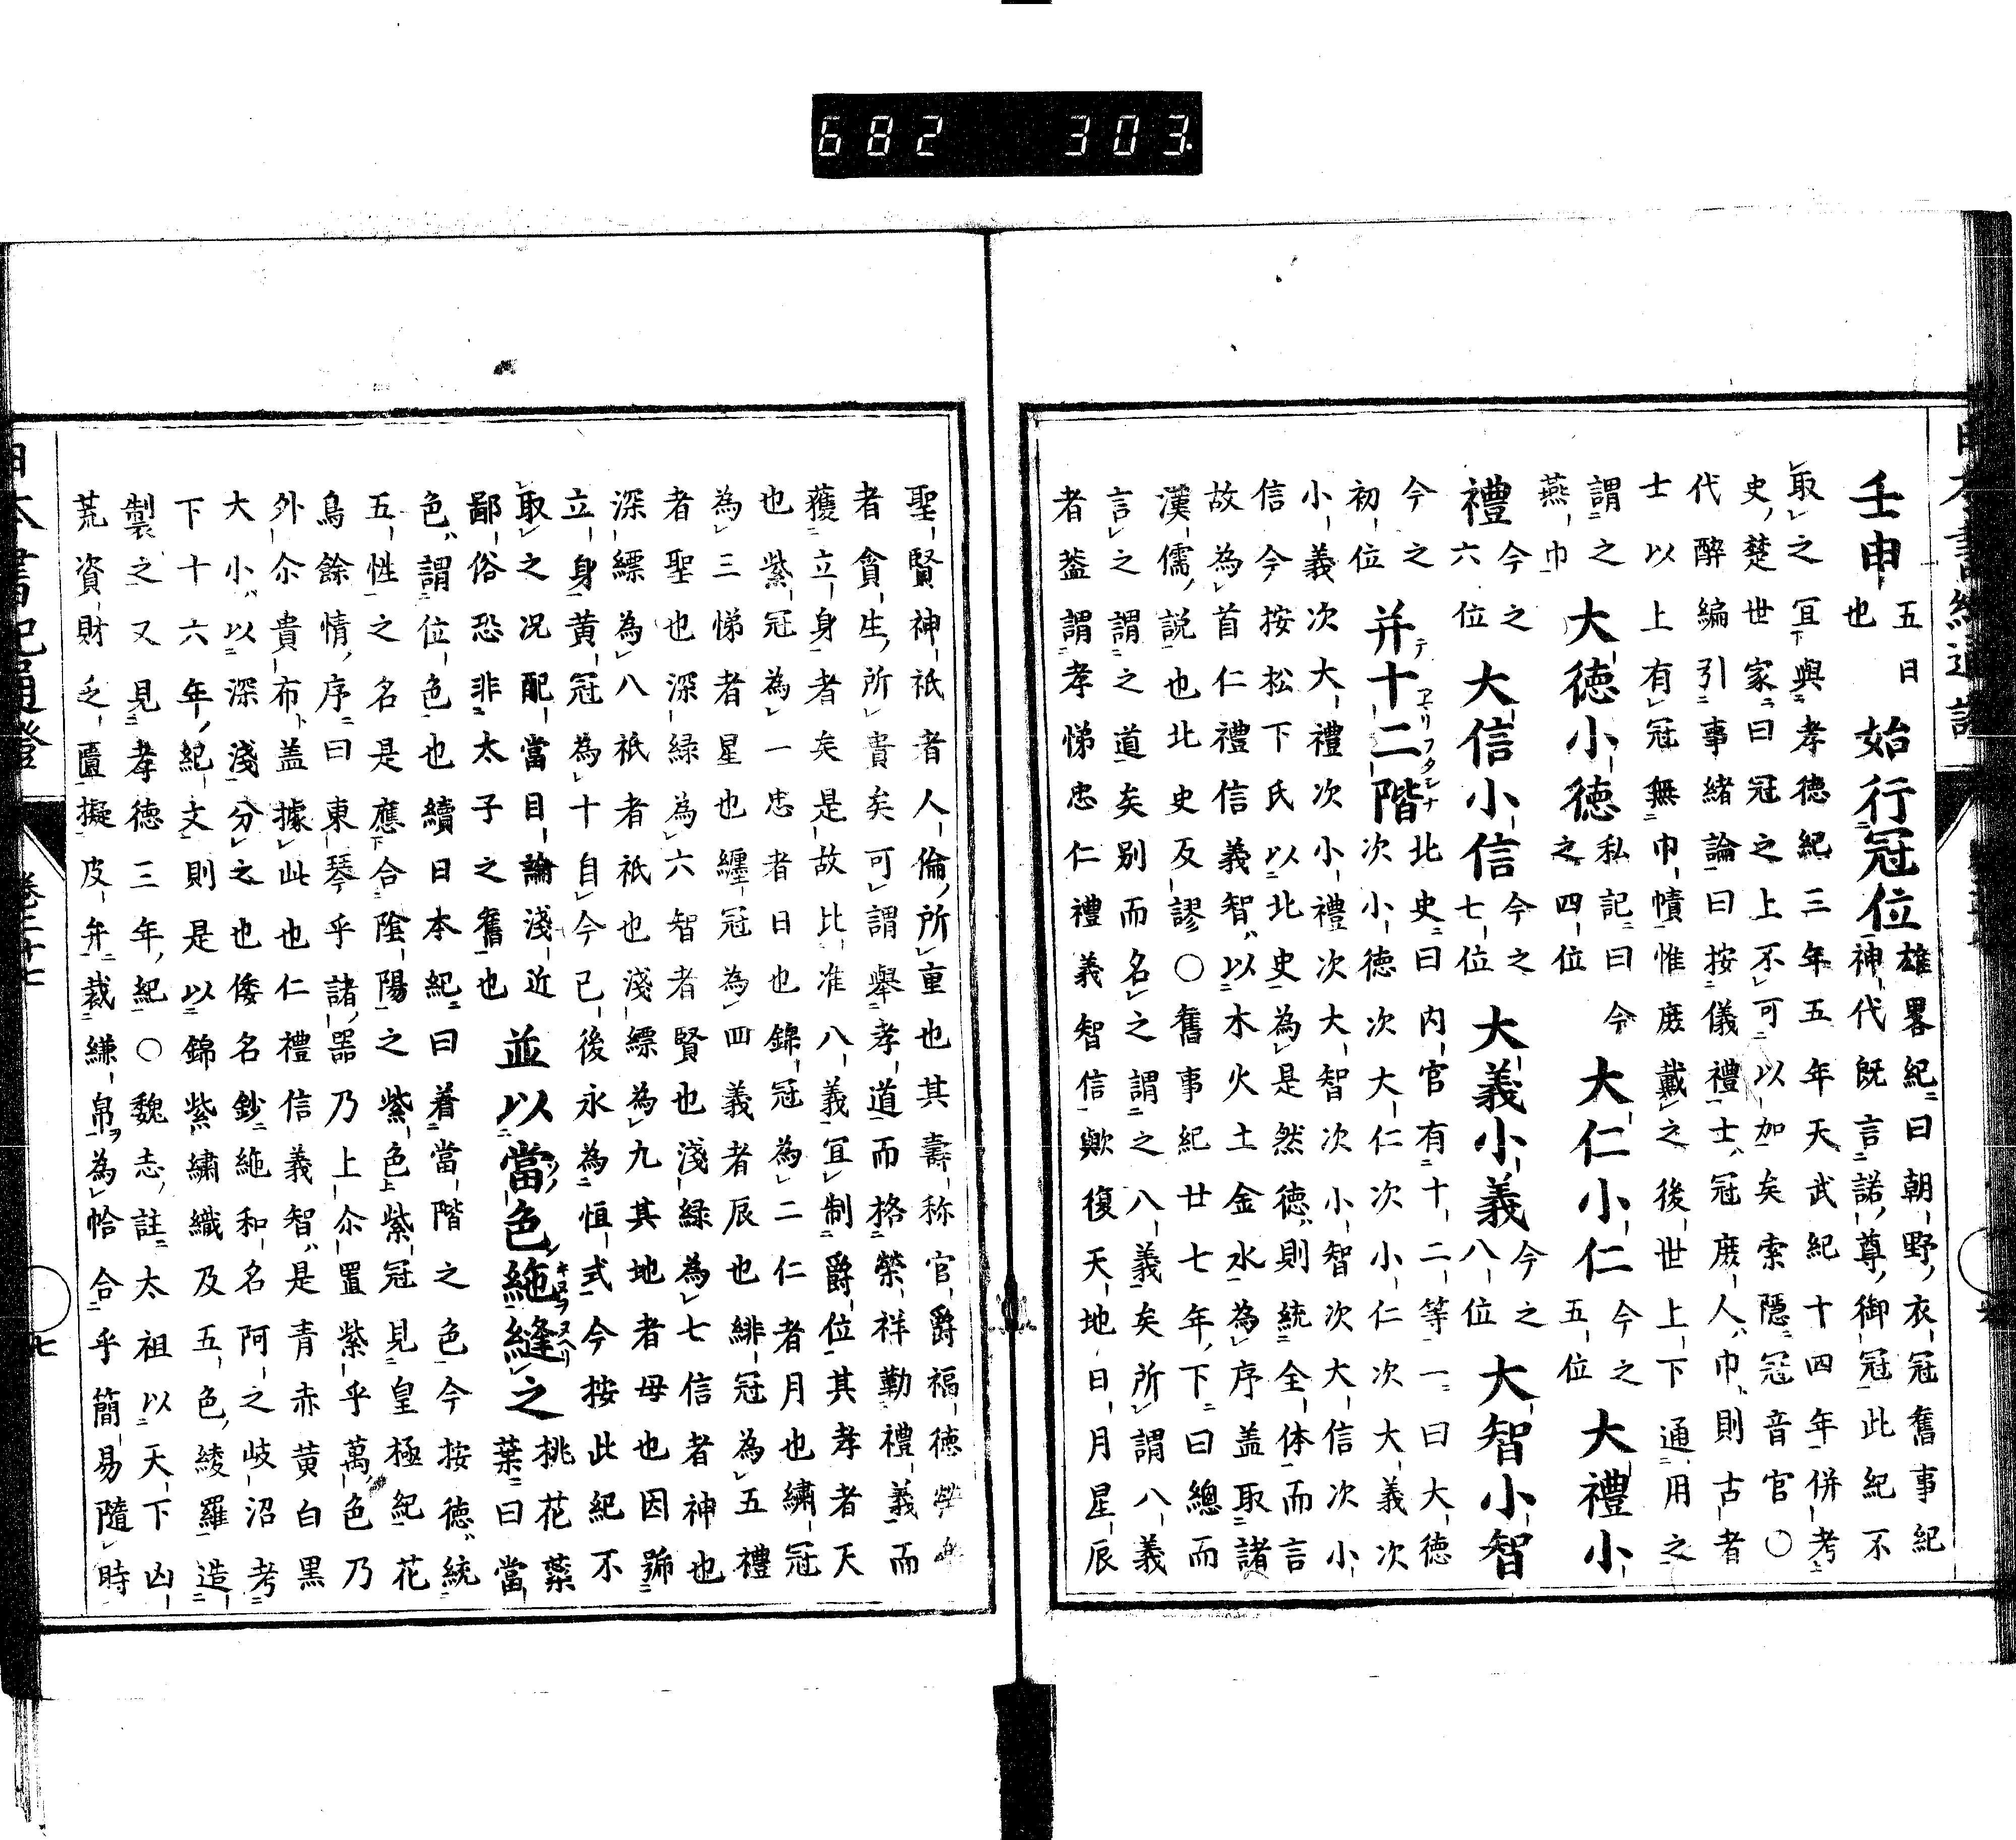 壬申 五日也 始行冠位 雄畧紀曰朝野衣冠舊事紀神代既言諾尊御冠此紀不
取之冝與孝德紀三年五年天武紀十四年併考
史楚世家曰冠之上不可以加矣索隱冠音官〇
代醉編引事緒論曰按儀禮士冠庶人巾則古者
士以上有冠無巾幘惟庶戴之後世上下通用之
謂之燕巾 大德小德 私記曰今之四位 大仁小仁 今之五位 大禮小
禮 今之六位 大信小信 今之七位 大義小義 今之八位 大智小智
今之初位 并十二階 北史曰内官有十二等一曰大德次小德次大仁次小仁次大義次
小義次大禮次小禮次大智次小智次大信次小
信今按松下氏以北史為是然德則統全体而言
故為首仁禮信義智以木火土金水為序盖取諸
漢儒説也北史反謬〇舊事紀廿七年下曰總而
言之謂之道矣别而名之謂之八義矣所謂八義
者葢謂孝悌忠仁禮義智信歟復天地日月星辰
聖賢神祇者人倫所重也其壽称官爵福德
者貪生所貴矣可謂舉孝道而格榮祥勤禮義而
蘶立身者矣是故比准八義冝制爵位其孝者天
也紫冠為一忠者日也錦冠為二仁者月也繡冠
為三悌者星也纒冠為四義者辰也緋冠為五禮
者聖也深緑為六智者賢也淺緑為七信者神也
深縹為八祇者祇也淺縹為九其地者母也因號
立身黄冠為十自今已後永為恒式今按此紀不
取之况配當目論淺近鄙俗恐非太子之舊也 並以當色絁縫之 桃花蘂葉曰當
色謂位色也續日本紀曰着當階之色今按德統
五性之名是應合陰陽之紫色紫冠見皇極紀花
鳥餘情序曰東琴乎諸器乃上尓置紫乎萬色乃
外尓貴布盖據此也仁禮信義智是青赤黄白黒
大小以深淺分之也倭名鈔絁和名阿之岐沼考
下十六年紀文則是以錦紫繡織及五色綾羅造
製之又見孝德三年紀〇魏志註太祖以天下凶
荒資財乏匱擬皮弁裁縑帛為恰合乎簡易隨時
日本書紀通證
卷二十七
七
682 303